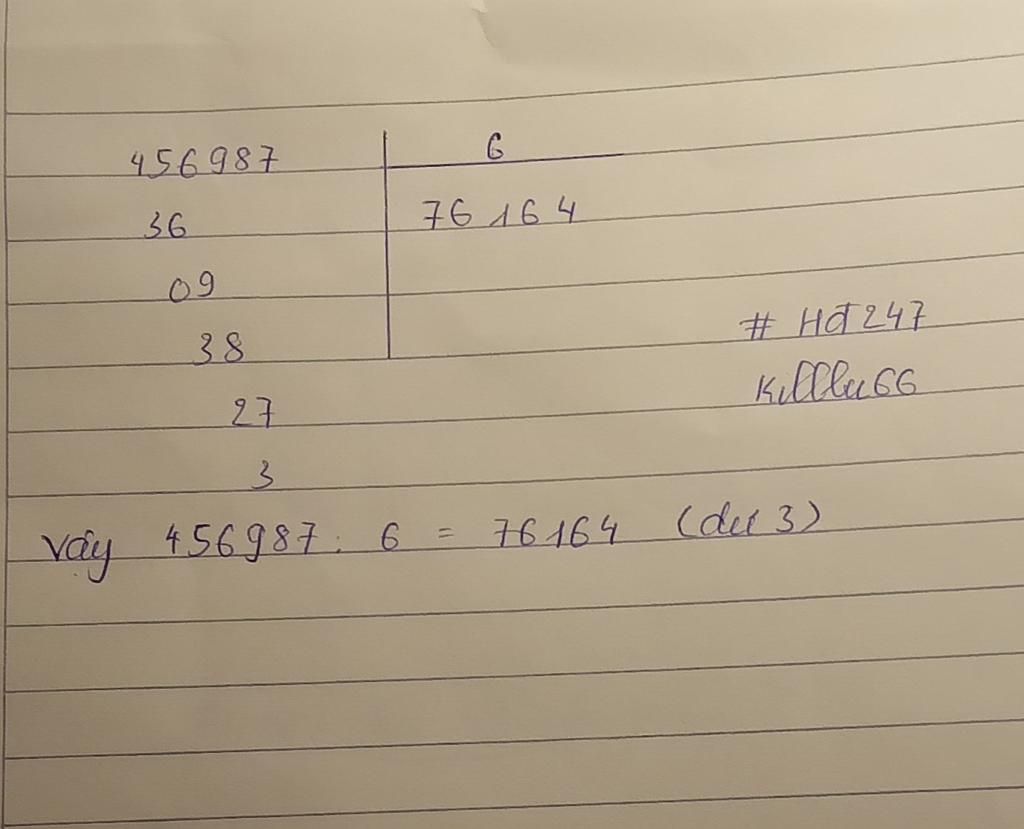 456987 6
36 76164
09
38
27
3
# Hđ247
Killlu66
Vậy 456987 : 6 = 76164 (dư 3)